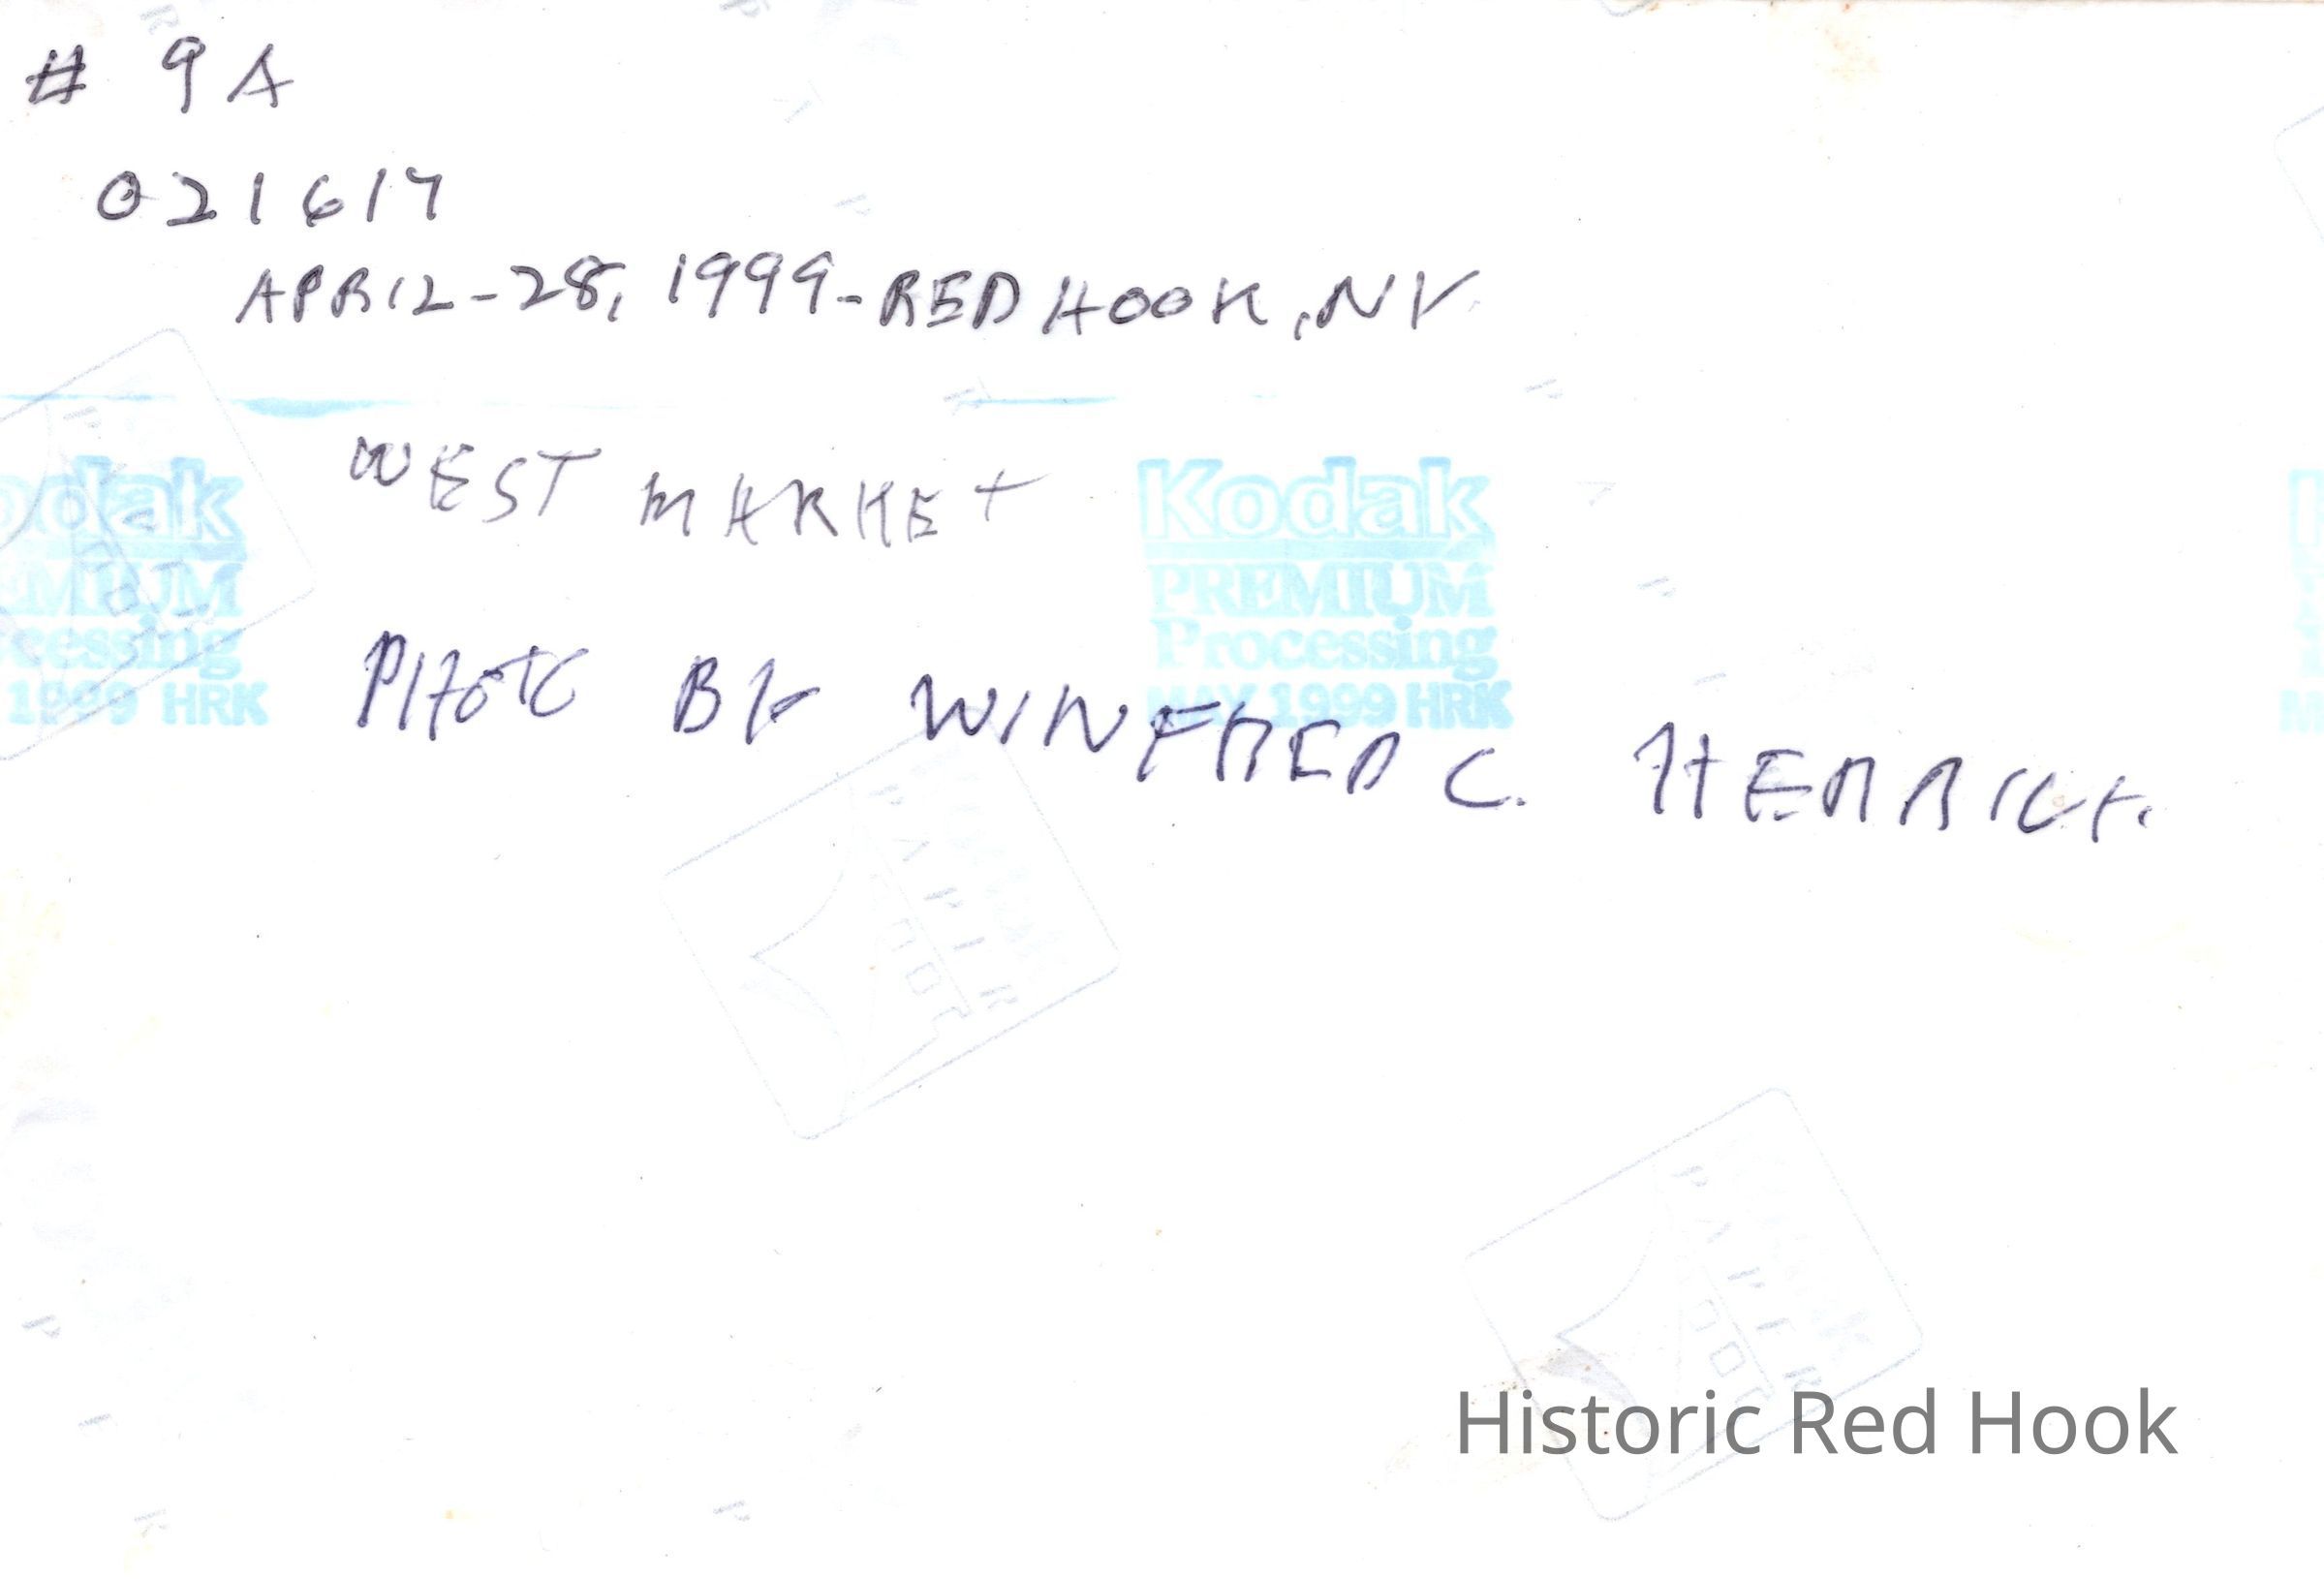 # 9A
021617
APRIL-28, 1999-RED HOOK, NY
WEST MARKET
PHOTO BY WINFRED C. HERRICK
Kodak
PREMIUM
Processing
MAY 1999 HRK
odak
EMIUM
cessing
1999 HRK
PAPIER
PAPIER
Historic Red Hook